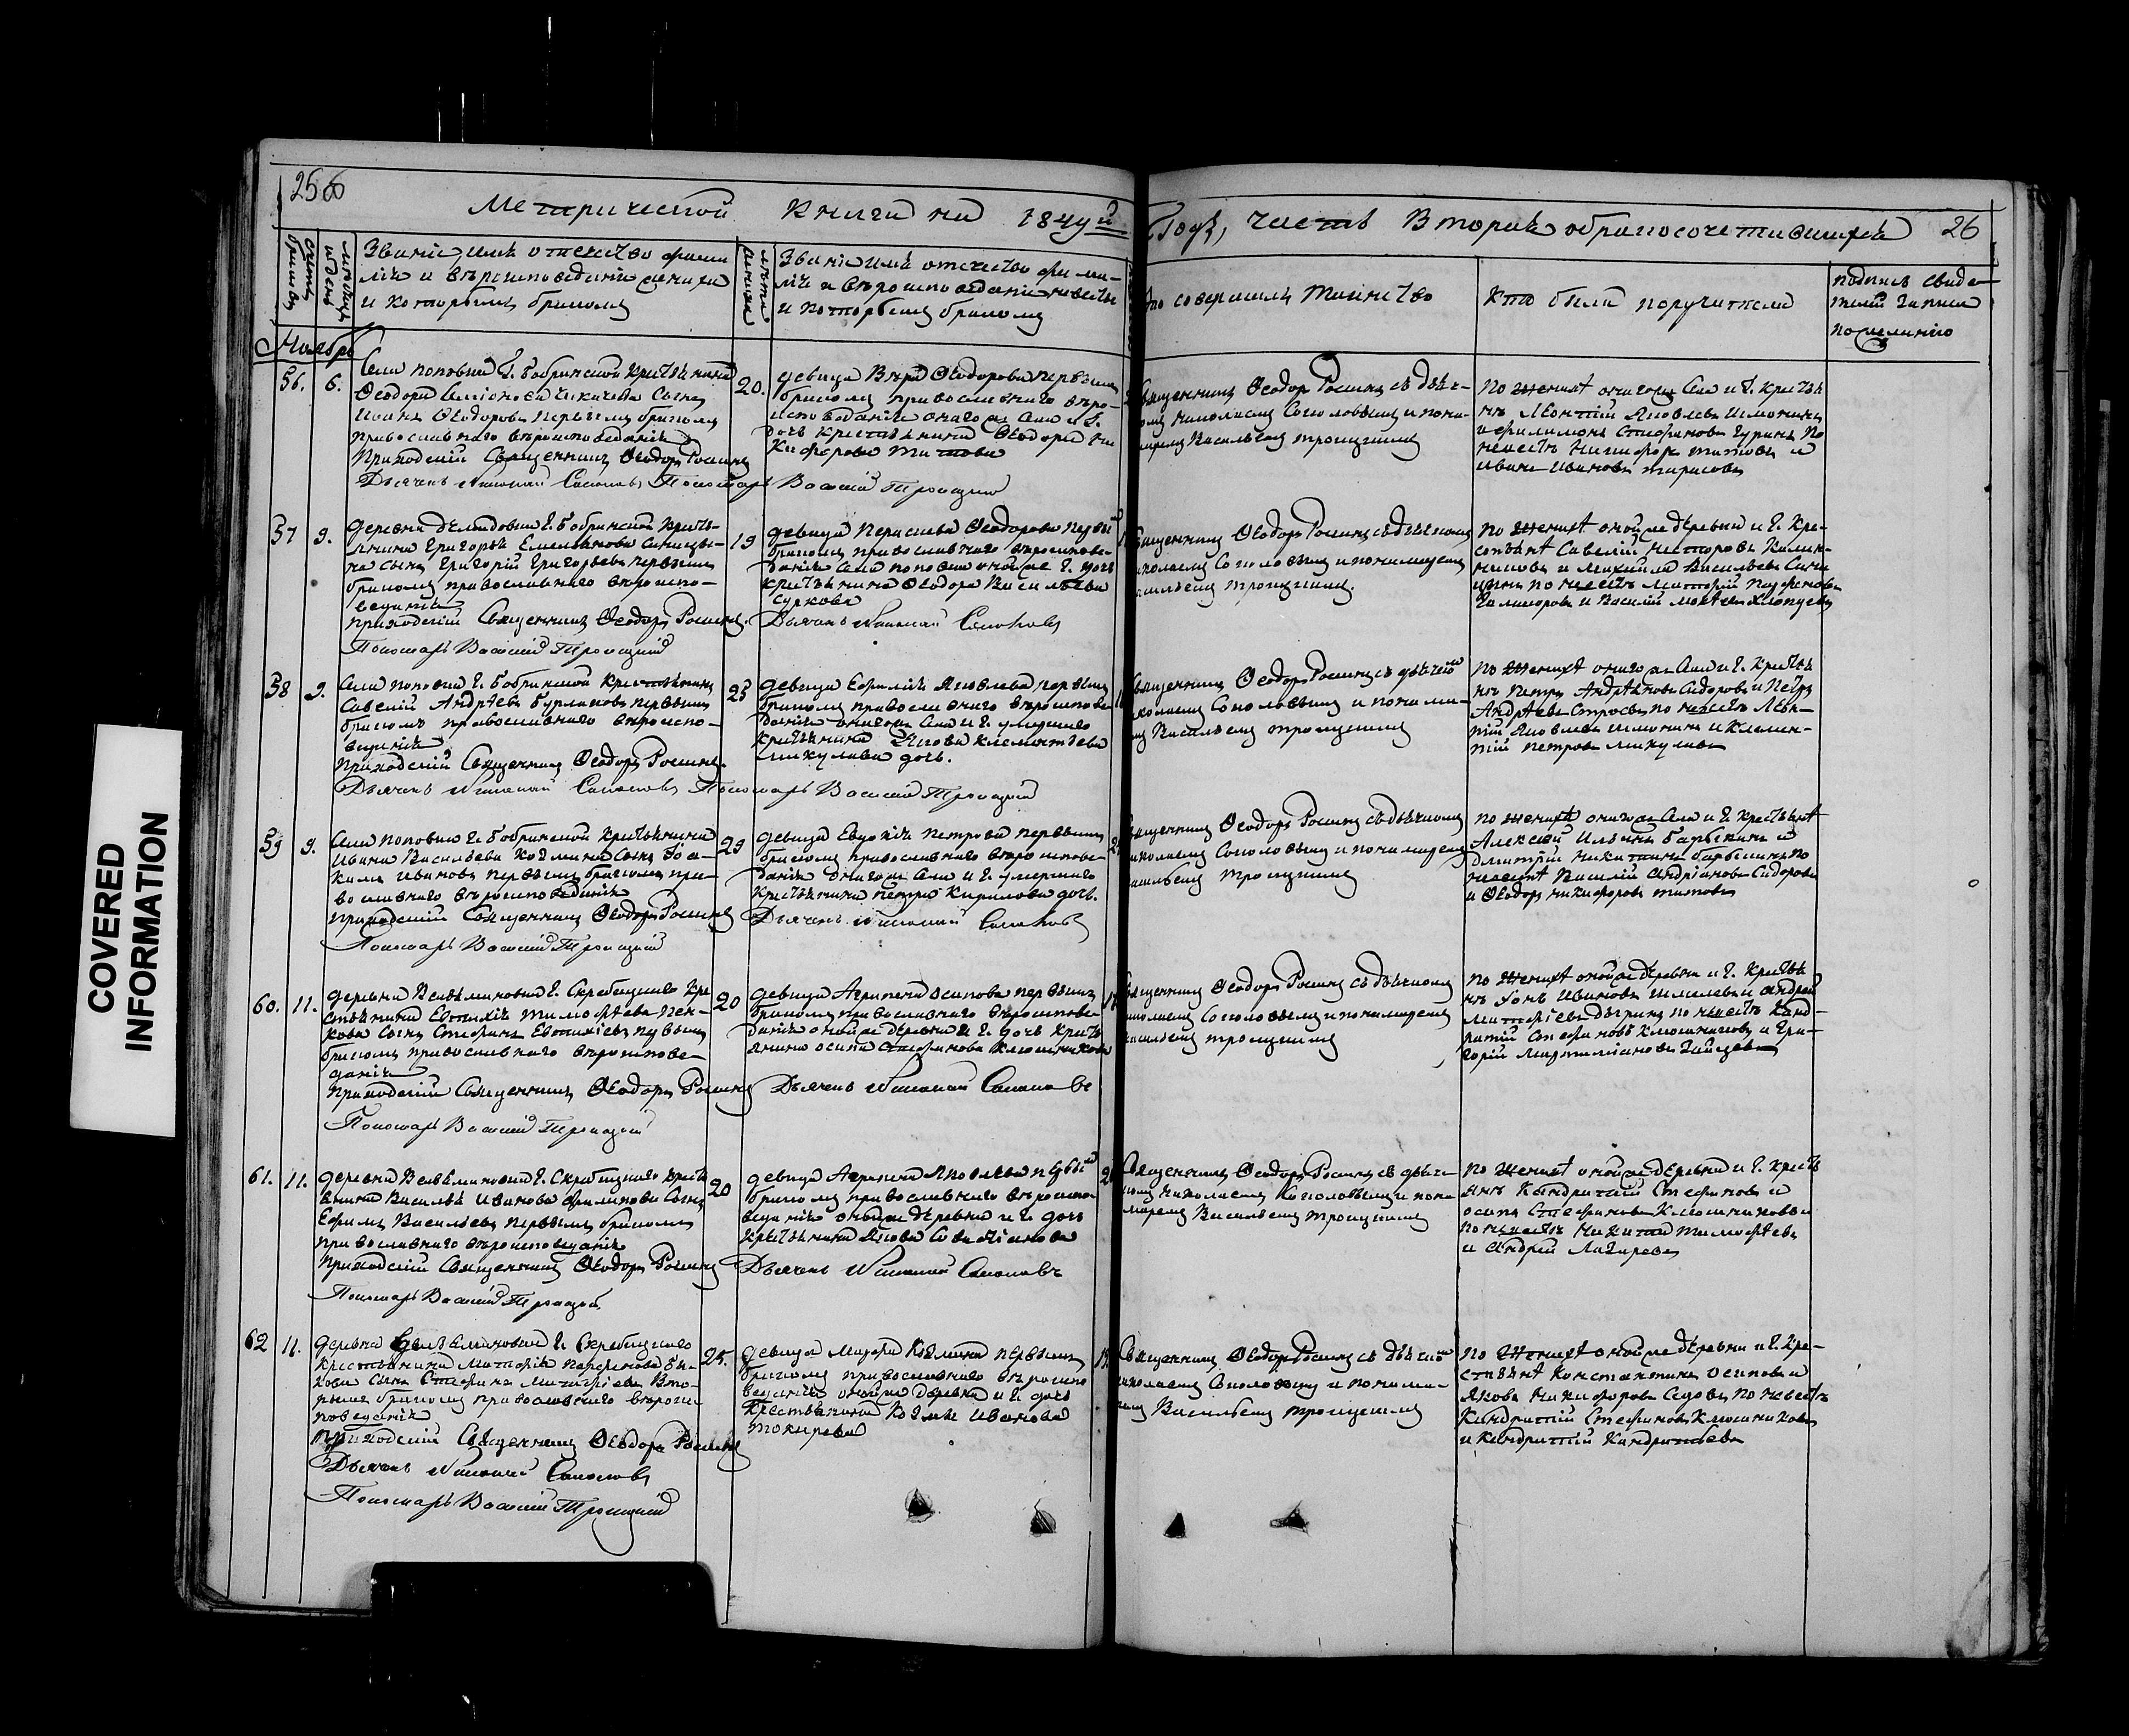 256
Метрической книги на 1849й Годъ, часть вторая о бракосочетавшихся 26
счетъ браковъ
месяцъ и день
Званіе имя отечество фами-
лія и вѣроисповеданіе жениха
и которымъ бракомъ
лѣта жениха
Званіе имя отечество фами-
лія и вѣроисповеданіе невѣсты
и которымъ бракомъ
кто совершалъ таинство
Кто были поручители
подпись свиде-
телей записи
по желанію
Ноябрь
56. 6.
Села поповки Г. Бобринской крестьянина
Ѳеодора
Сынъ
Иванъ Ѳеодоровъ первымъ бракомъ
православнаго вѣроисповеданія
Приходскій Священникъ Ѳеодоръ Росинъ
Дьячекъ Николай Соколовъ Пономарь Василій Троицкій
20.
девица Вѣра Ѳеодорова первымъ
бракомъ православнаго вѣро-
исповѣданія онагоже села и Г.
дочь крестьянина Ѳеодора Ни-
кифорова Титова
Священникъ Ѳеодоръ Росинъ съ дьяч-
комъ Николаемъ Соколовымъ и поно-
маремъ Васильемъ Троицкимъ
По женихѣ онагоже села и Г. крестья
нѣ Леонтій Яковлевъ
и Филимонъ Стефановъ Гуринъ по
невестѣ Никифоръ Титовъ и
Иванъ Ивановъ Тарасовъ
57 9.
деревни Г. Бобринской кресть-
янина Григорья Емельянова Синицы-
на сынъ Григорій Григорьевъ первымъ
бракомъ православнаго вѣроиспо-
веданія
приходскій Священникъ Ѳеодоръ Росинъ. Дьячекъ Николай Соколовъ
Пономарь Василій Троицкій
19
девица Параскева Ѳеодорова первы
бракомъ православнаго вѣроиспове-
данія села поповки онойже Г. дочь
крестьянина Ѳеодора Васильева
Суркова
Священникъ Ѳеодоръ Росинъ съ дьячкомъ
Николаемъ Соколовымъ и пономаремъ
Васильемъ Троицкимъ.
по женихѣ онойже деревни и Г. кре-
стьянѣ Савелій Несторовъ Калин-
никовъ и Михаилъ Васильевъ Сини
цынъ по невестѣ Матфей Парфеновъ
и Василій
58 9.
Села поповки Г. Бобринской крестьянинъ
Савелій Андрѣевъ Бурлаковъ первымъ
бракомъ православнаго вѣроиспо-
веданія
приходскій Священникъ Ѳеодоръ Росинъ.
Дьячекъ Николай Соколовъ Пономарь Василій Троицкій
25
девица Евфимія Яковлева первымъ
бракомъ православнаго вѣроиспове
данія онагоже села и Г. умершего
крестьянина Якова Клементьева
Микулива дочь.
Священникъ Ѳеодоръ Росинъ съ дьячком
Николаемъ Соколовымъ и понома-
ремъ Васильемъ Троицкимъ
по женихѣ онагоже села и Г. крестья
нѣ Петръ Андрѣяновъ Сидоровъ и Петръ
Андрѣевъ по невестѣ Леон-
тій Яковлевъ и Клемен-
тій Петровъ Микуливъ
59 9.
Села поповки Г. Бобринской крестьянина
Ивана Васильева Козмина сынъ Іоа-
кимъ Ивановъ первымъ бракомъ пра-
вославнаго вѣроисповеданія
приходскій Священникъ Ѳеодоръ Росинъ Дьячекъ Николай Соколовъ
Пономарь Василій Троицкій
29
девица Евдокія Петрова первымъ
бракомъ православнаго вѣроиспове-
данія онагоже села и Г. умершего
крестьянина Петра Кирилова дочь.
Священникъ Ѳеодоръ Росинъ съ дьячкомъ
Николаемъ Соколовымъ и пономаремъ
Васильемъ Троицкимъ
по женихѣ онагоже села и Г. крестьянѣ
Алексѣй Ильинъ и
Дмитрій Никитинъ по
невестѣ Василій Андріяновъ Сидоровъ
и Ѳеодоръ Никифоровъ Титовъ
60. 11.
деревни Вельяминовки Г. Скребицкаго кре
стьянина Евтихія Тимофѣева Пен-
кова сынъ Стефанъ Евтихіевъ первымъ
бракомъ православнаго вѣроиспове-
данія
приходскій Священникъ Ѳеодоръ Росинъ Дьячекъ Николай Соколовъ
Пономарь Василій Троицкій
20
девица Агрипена Осипова первымъ
бракомъ православнаго вѣроиспове-
данія онойже деревни и Г. дочь кресть
янина Осипа Стефанова Клюшникова
Священникъ Ѳеодоръ Росинъ съ дьячкомъ
Николаемъ Соколовымъ и пономаремъ
Васильемъ Троицкимъ
по женихѣ онойже деревни и Г. крестья
нѣ Іонъ Ивановъ Шмелевъ и Андрей
по невестѣ Канд-
ратій Стефановъ Клюшниковъ и Гри-
горій Зайцевъ
61. 11.
деревни Вельяминовки Г. Скребицкаго кресть
янина Василья Иванова Филипова сынъ
Ефимъ Васильевъ первымъ бракомъ
православнаго вѣроисповеданія
приходскій Священникъ Ѳеодоръ Росинъ Дьячекъ Николай Соколовъ
Пономарь Василій Троицкій
20
девица Агрипина Яковлева первы
бракомъ православнаго вѣроиспо-
веданія онойже деревни и Г. дочь
крестьянина Якова Севастіанова
Священникъ Ѳеодоръ Росинъ съ дьяч-
комъ Николаемъ Соколовымъ и поно
маремъ Васильемъ Троицкимъ
по женихѣ онойже деревни и Г. кресть
янѣ Кандратій Стефановъ и
Осипъ Стефановъ Клюшниковы
по невестѣ Никита Тимофѣевъ
и Андрей Лазаревъ
62 11.
деревни Вельяминовки Г. Скребицкаго
крестьянина Матфія Парфенова Бы-
кова сынъ Стефанъ Матфіевъ вто-
рымъ бракомъ православнаго вѣроис-
поведанія
приходскій Священникъ Ѳеодоръ Росинъ
Дьячекъ Николай Соколовъ
Пономарь Василій Троицкій
25.
девица Марфа Козмина первымъ
бракомъ православнаго вѣроиспо
веданія онойже деревни и Г. дочь
крестьянина Козмы Иванова
Токарева
Священникъ Ѳеодоръ Росинъ съ дьячком
Николаемъ Соколовымъ и понома-
ремъ Васильемъ Троицкимъ
по женихѣ онойже деревни и Г. кре-
стьянѣ Константинъ Осиповъ и
Яковъ Никифоровъ Седовъ по невестѣ
Кандратій Стефановъ Клюшниковъ
и Кандратій Кандратьевъ
COVERED
INFORMATION